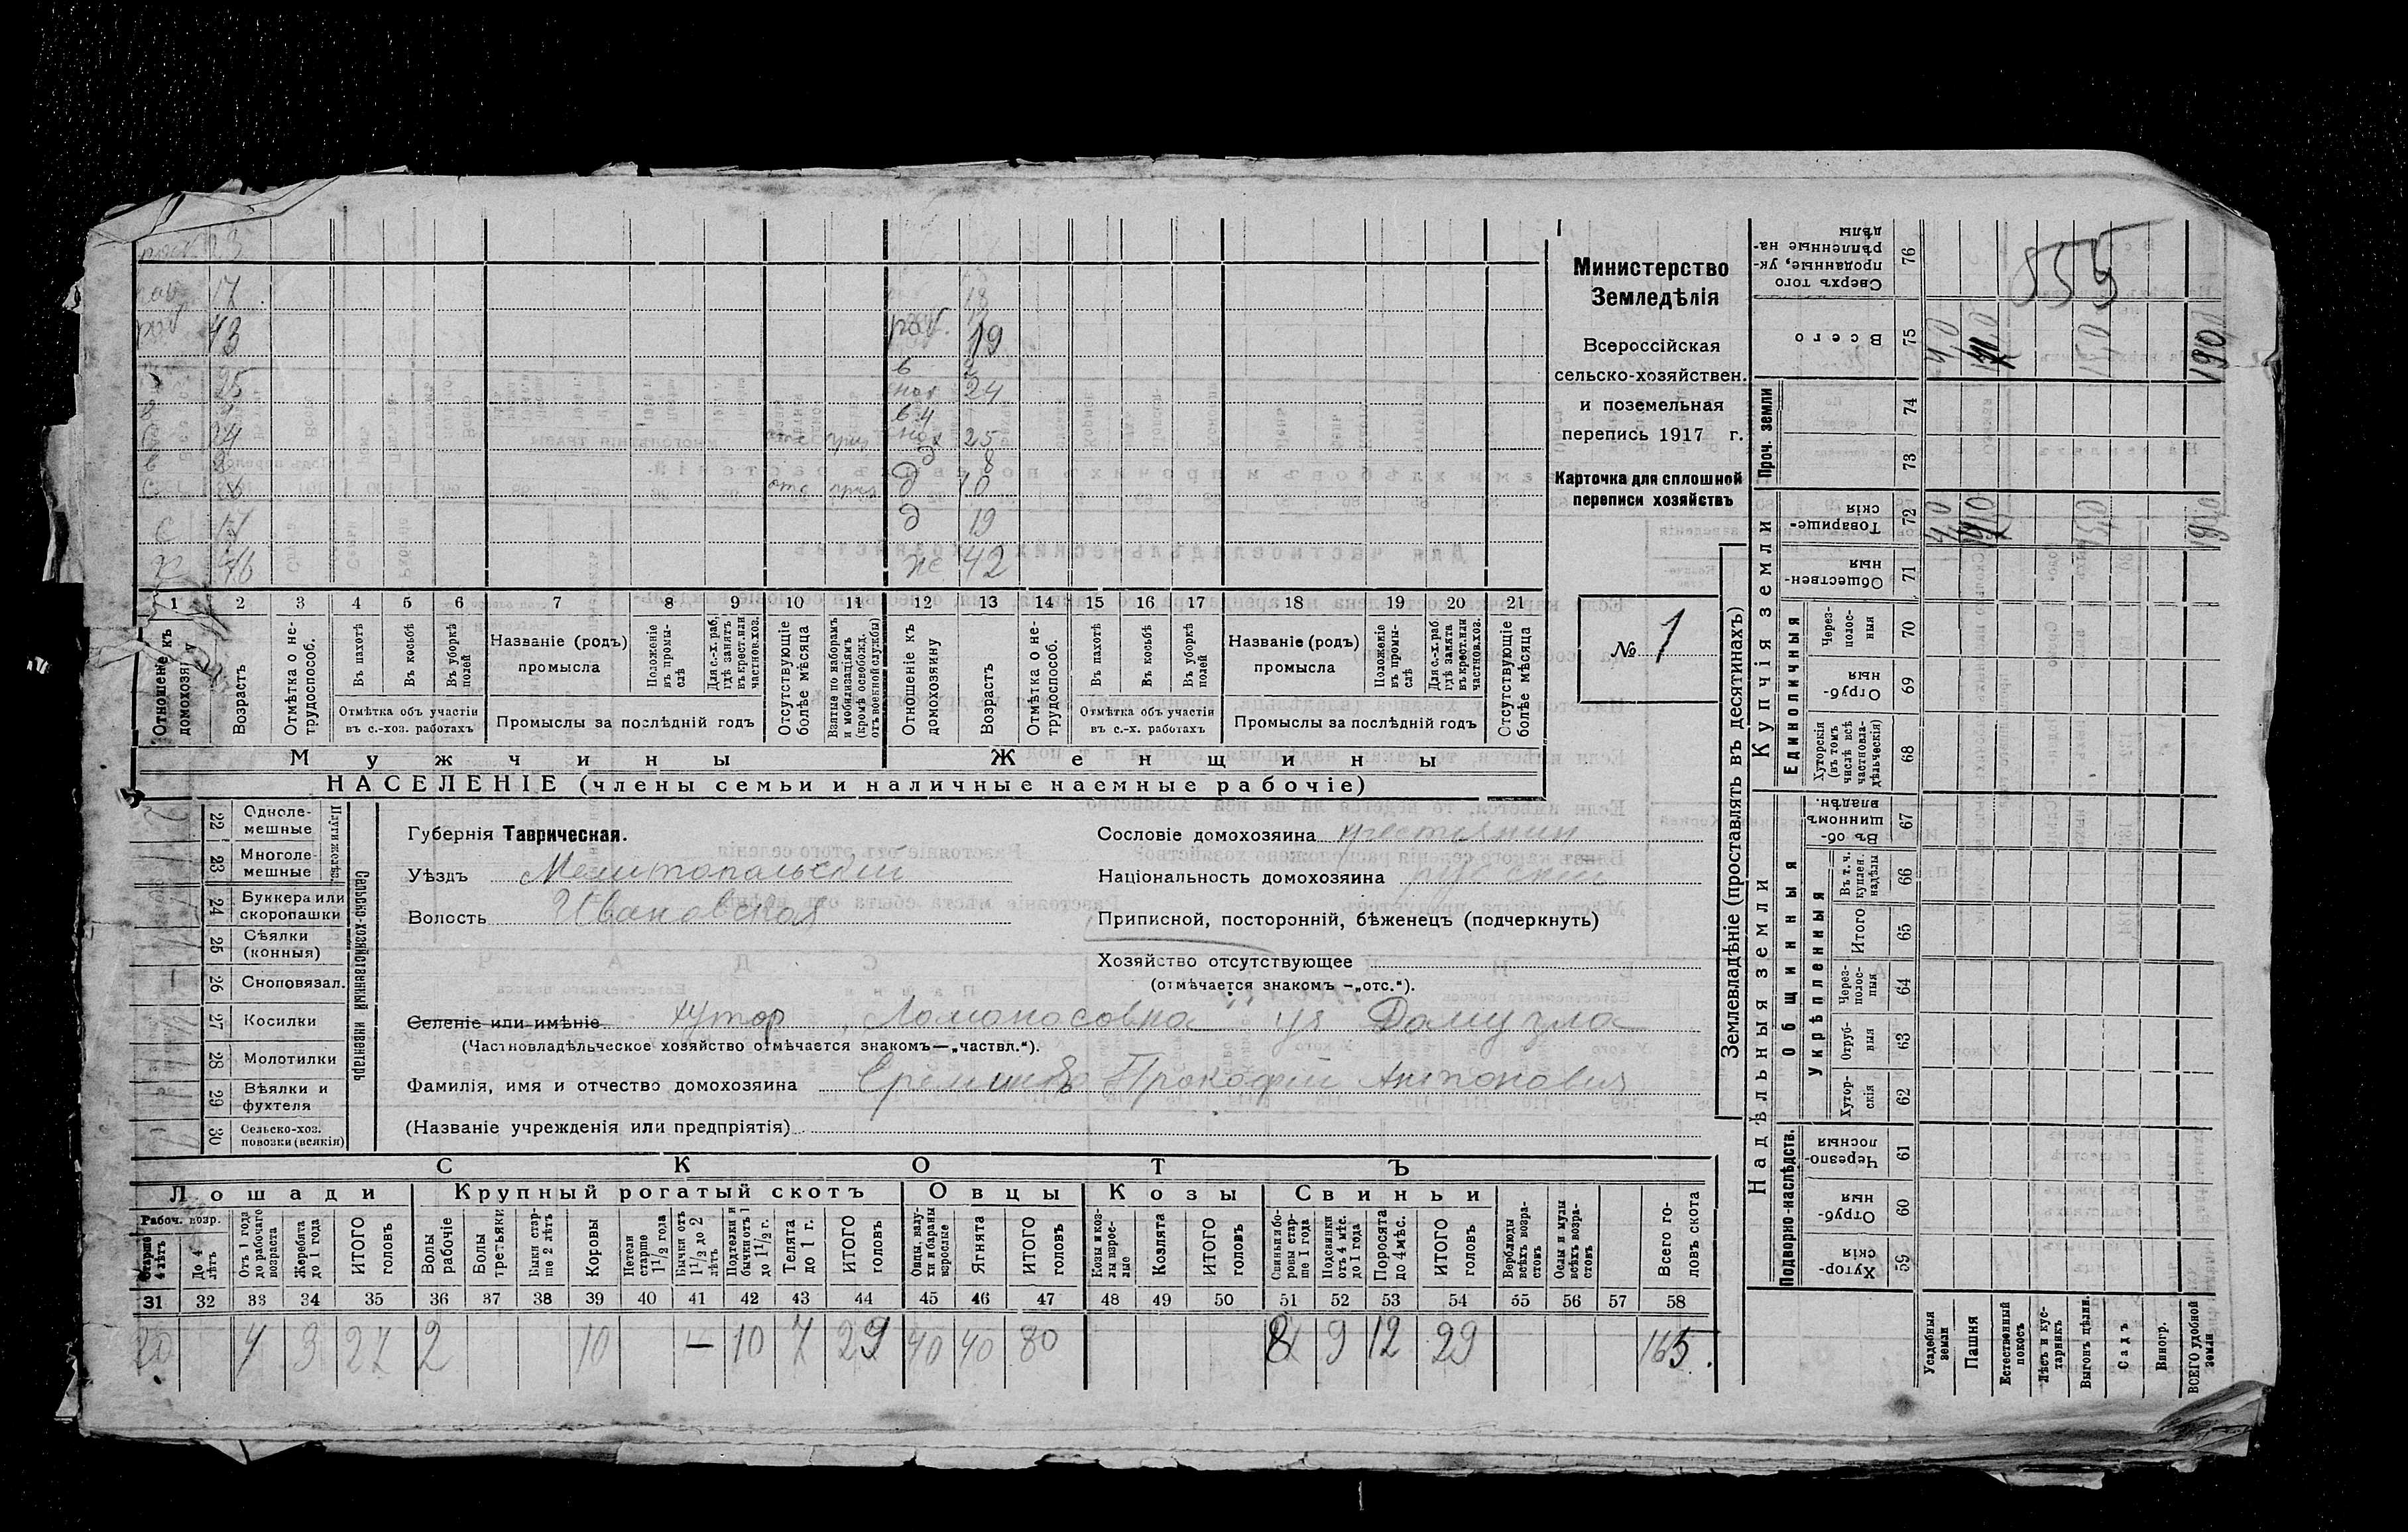 Министерство
Земледѣлія
Всероссійская
сельско-хозяйствен.
и поземельная
перепись 1917 г.
Карточка для сплошной
переписи хозяйствъ
№ 1
555
17
43
25
24
раб. 19
24
в 4
25
д 8
д 10
д 19
42
1 2 3 4 5 6 7 8 9 10 11 12 13 14 15 16 17 18 19 20 21
Отношеніе къ домохозяину
Возрастъ
Отмѣтка о не-трудоспособ.
Въ пахотѣ
Въ косьбѣ
Въ уборкѣ полей
Отмѣтка объ участіи въ с.-хоз. работахъ
Названіе (родъ) промысла
Положеніе въ промы-слѣ
Для с.-х. раб. гдѣ занятъ въ крест. или частнов. хоз.
Промыслы за послѣдній годъ
Отсутствующіе болѣе мѣсяца
Взятые по наборамъ и мобилизаціямъ (кромѣ освобожд. отъ военной службы)
Отношеніе къ домохозяину
Возрастъ
Отмѣтка о не-трудоспособ.
Въ пахотѣ
Въ косьбѣ
Въ уборкѣ полей
Отмѣтка объ участіи въ с.-х. работахъ
Названіе (родъ) промысла
Положеніе въ промы-слѣ
Для с.-х. раб. гдѣ занята въ крест. или частнов. хоз.
Промыслы за послѣдній годъ
Отсутствующіе болѣе мѣсяца
Мужчины Женщины
НАСЕЛЕНІЕ (члены семьи и наличные наемные рабочіе)
22 Одноле-мешные
23 Многоле-мешные
24 Буккера или скоропашки
25 Сѣялки (конныя)
26 Сноповязал.
27 Косилки
28 Молотилки
29 Вѣялки и фухтеля
30 Сельско-хоз. повозки (всякія)
Сельско-хозяйственный инвентарь
Губернія Таврическая.
Уѣздъ Мелитопольскій
Волость Ивановская
Сословіе домохозяина крестьянин
Національность домохозяина русскій
Приписной, посторонній, бѣженецъ (подчеркнуть)
Хозяйство отсутствующее
(отмѣчается знакомъ —„отс.“).
Селеніе или имѣніе хутор Ломоносовка
(Частновладѣльческое хозяйство отмѣчается знакомъ—„частвл.“).
Фамилія, имя и отчество домохозяина Прокофій Антонович
(Названіе учрежденія или предпріятія)
СКОТЪ
Лошади Крупный рогатый скотъ Овцы Козы Свиньи
Рабоч. возр.
Старше 4 лѣтъ
До 4 лѣтъ
Отъ 1 года до рабочаго возраста
Жеребята до 1 года
ИТОГО головъ
Волы рабочіе
Волы третьяки
Быки стар-ше 2 лѣтъ
Коровы
Нетели старше 1 1/2 года
Бычки отъ 1 1/2 до 2 лѣтъ
Подтелки и бычки отъ 1 до 1 1/2 г.
Телята до 1 г.
ИТОГО головъ
Овцы, валу-хи и бараны взрослые
Ягнята
ИТОГО головъ
Козы и коз-лы взрос-лые
Козлята
ИТОГО головъ
Свиньи и бо-ровы стар-ше 1 года
Подсвинки отъ 4 мѣс. до 1 года
Поросята до 4 мѣс.
ИТОГО головъ
Верблюды всѣхъ возра-стовъ
Ослы и мулы всѣхъ возра-стовъ
Всего го-ловъ скота
31 32 33 34 35 36 37 38 39 40 41 42 43 44 45 46 47 48 49 50 51 52 53 54 55 56 57 58
20 4 3 27 2 10 — 10 7 29 40 40 80 8 9 12 29 165.
Землевладѣніе (проставлять въ десятинахъ)
Надѣльныя земли Купчія земли Проч. земли
Подворно-наслѣдств.
Общинныя
Укрѣпленныя
Единоличныя
Хутор-скія 59
Отруб-ныя 60
Черезпо-лосныя 61
Хутор-скія 62
Отруб-ныя 63
Через-полос-ныя 64
Итого 65
Въ т. ч. куплен. надѣлы 66
Въ об-щинномъ владѣн. 67
Хуторскія (въ томъ числѣ всѣ частновла-дѣльческія) 68
Отруб-ныя 69
Через-полос-ныя 70
Обществен-ныя 71
Товарище-скія 72
73
74
Всего 75
Сверхъ того проданные, ук-рѣпленные на-дѣлы 76
Усадебныя земли
Пашня
Естественный покосъ
Лѣсъ и кус-тарникъ
Выгонъ цѣлин.
Садъ
Виногр.
ВСЕГО удобной земли
190
190